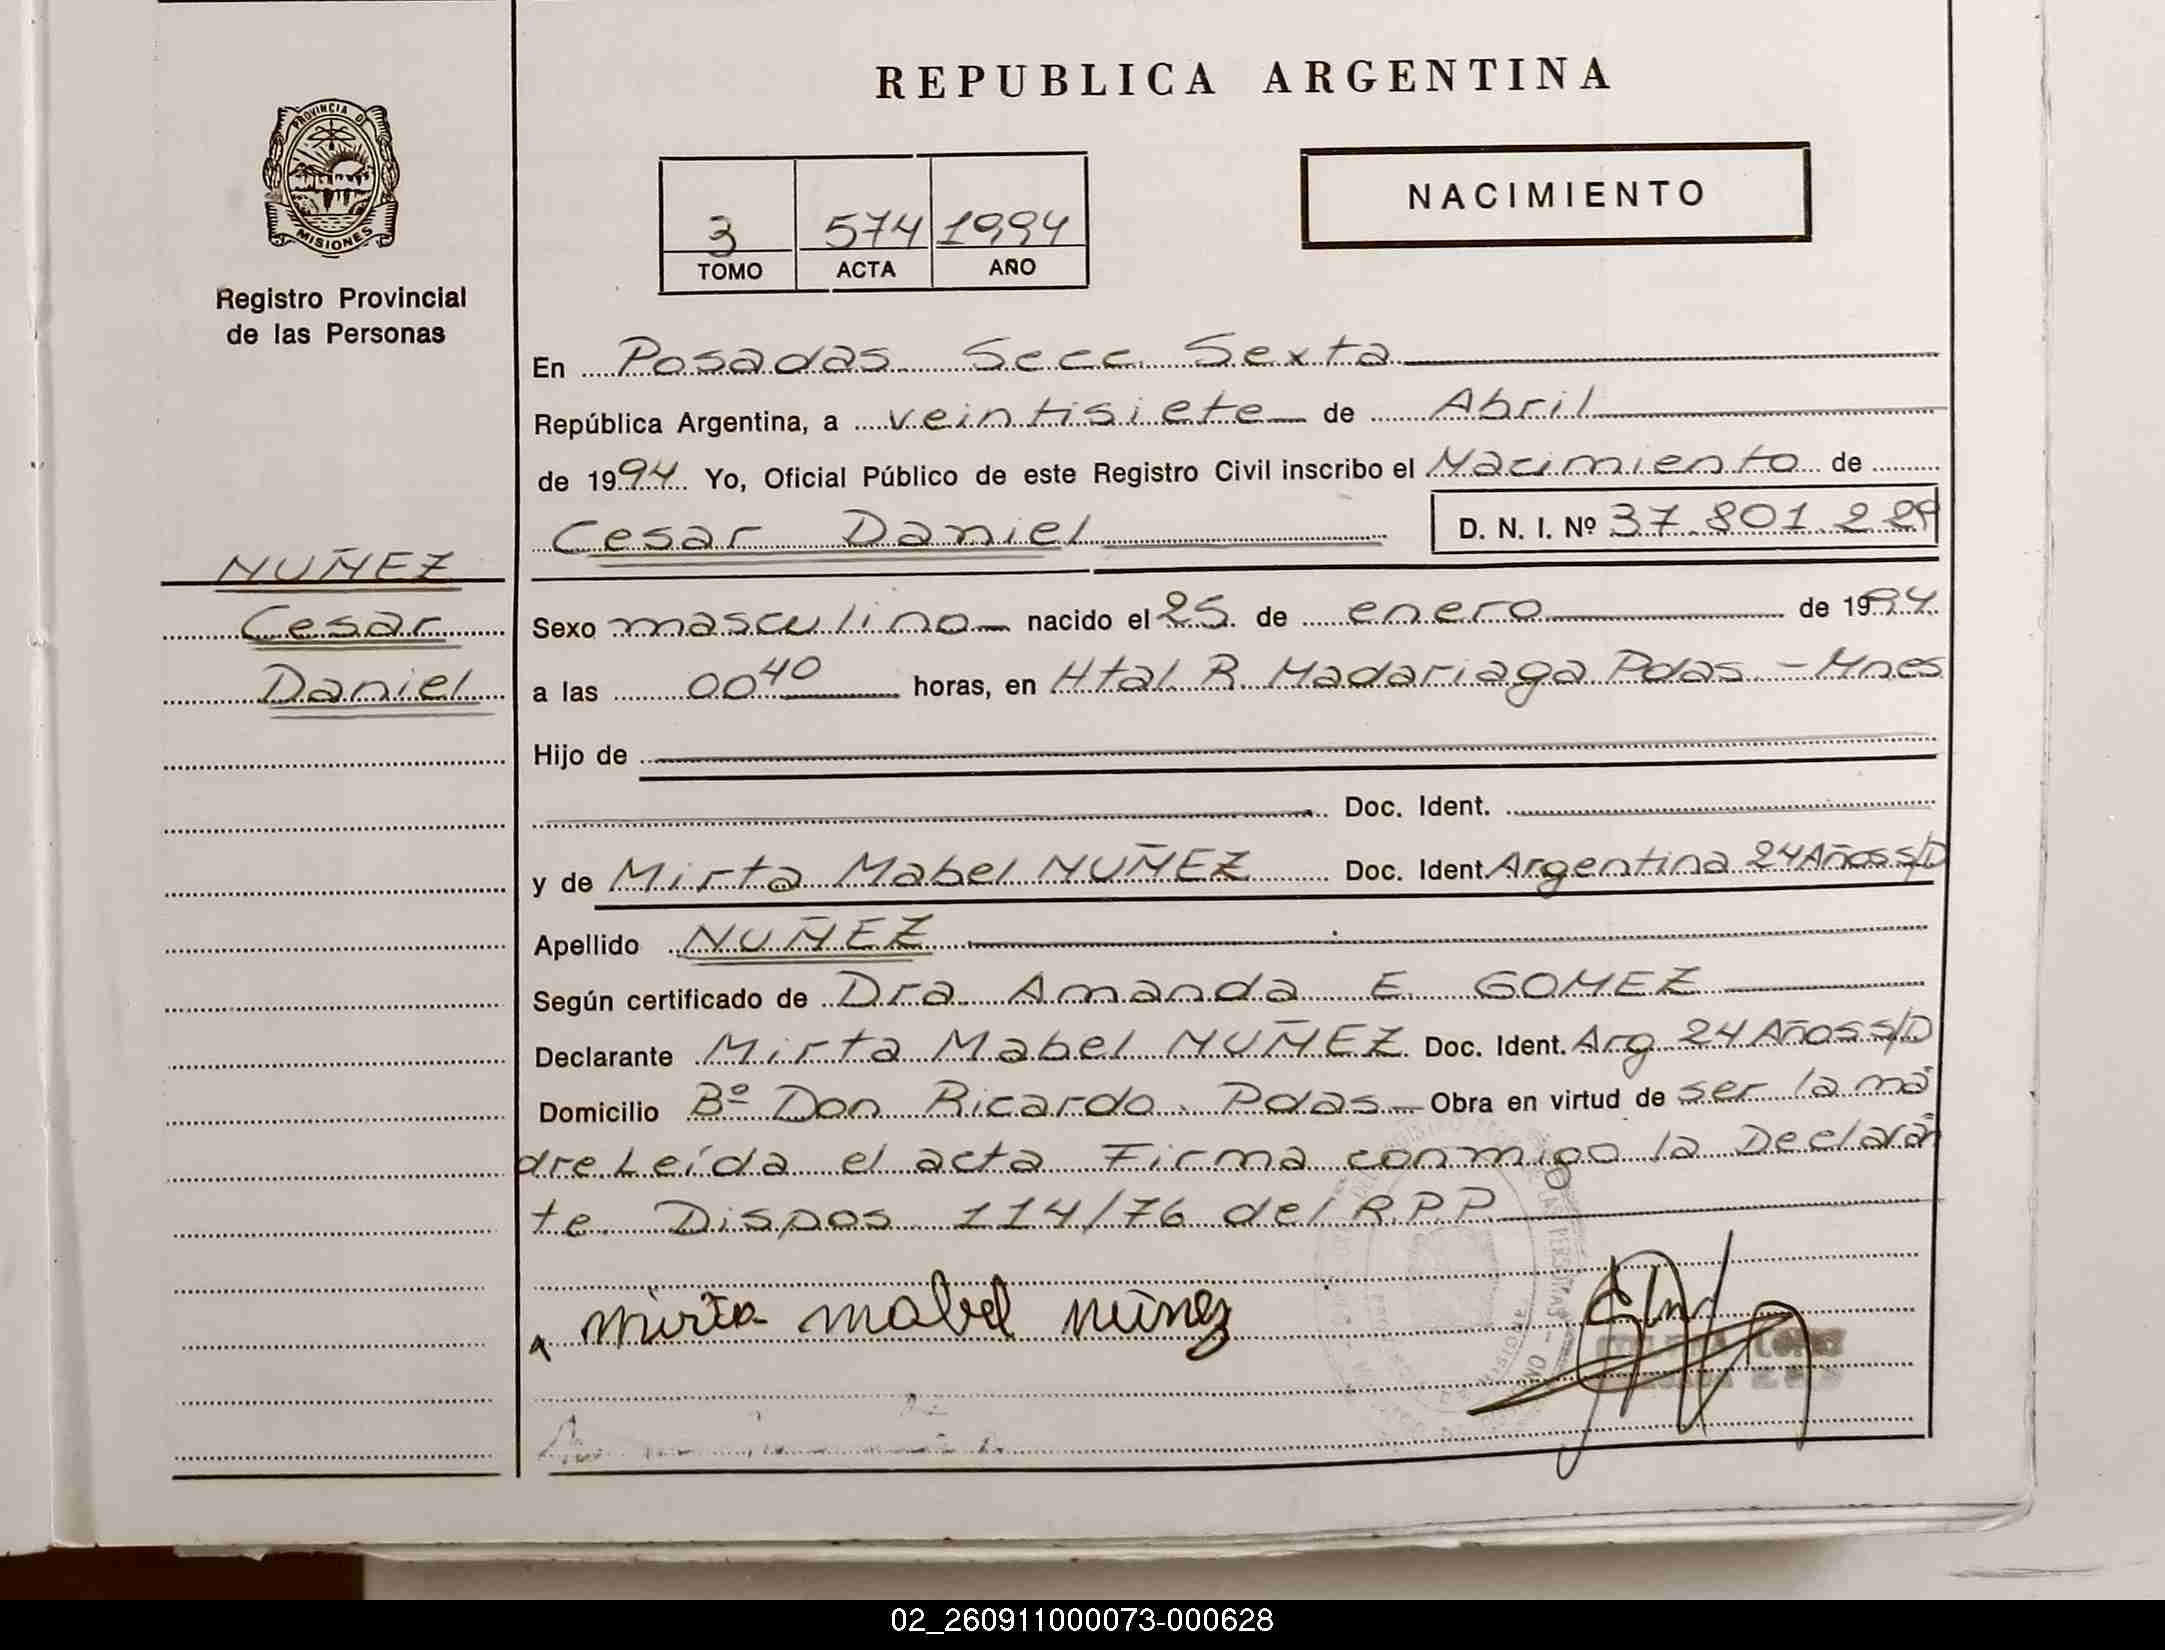 REPUBLICA ARGENTINA
PROVINCIA D
MISIONES
Registro Provincial
de las Personas
3 574 1994
TOMO ACTA AÑO
NACIMIENTO
En Posadas Secc. Sexta
República Argentina, a veintisiete de Abril
de 1994 Yo, Oficial Público de este Registro Civil inscribo el Nacimiento de
Cesar Daniel D. N. I. Nº 37.801.229
NUÑEZ
Cesar
Daniel
Sexo masculino nacido el 25 de enero de 1994
a las 00 40 horas, en Htal. R. Madariaga Pdas. - Mnes
Hijo de
Doc. Ident.
y de Mirta Mabel NUÑEZ Doc. Ident. Argentina 24 Años S/D
Apellido NUÑEZ
Según certificado de Dra Amanda E. GOMEZ
Declarante Mirta Mabel NUÑEZ Doc. Ident. Arg 24 Años S/D
Domicilio Bº Don Ricardo. Pdas Obra en virtud de ser la ma
dre Leída el acta Firma conmigo la Declaran
te. Dispos 114/76 del R.P.P.
mirta mabel nuñez
02_260911000073-000628